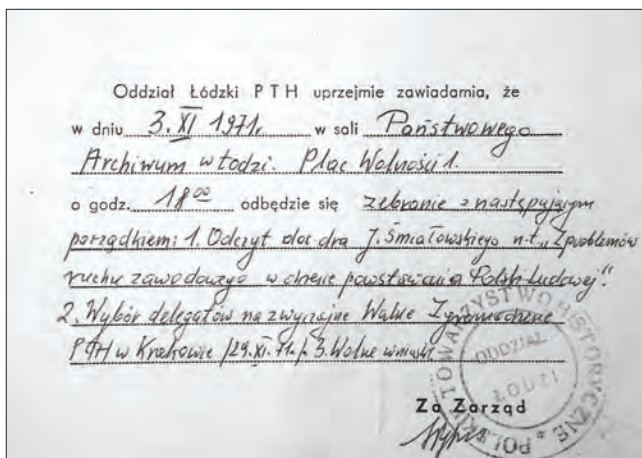 Oddział Łódzki PTH uprzejmie zawiadamia, że
w dniu 3. XI 1971r. w sali Państwowego
Archiwum w Łodzi. Plac Wolności 1.
o godz. 18 00 odbędzie się zebranie z następującym
porządkiem: 1. Odczyt doc. dra J. Śmiałowskiego n.t. „Z problemów
ruchu zawodowego w okresie powstawania Polski Ludowej".
2. Wybór delegatów na zwyczajne Walne Zgromadzenie
PTH w Krakowie /29.XI.71r./. 3. Wolne wnioski.
POLSKIE TOWARZYSTWO HISTORYCZNE *
ODDZIAŁ
ŁÓDŹ
Za Zarząd